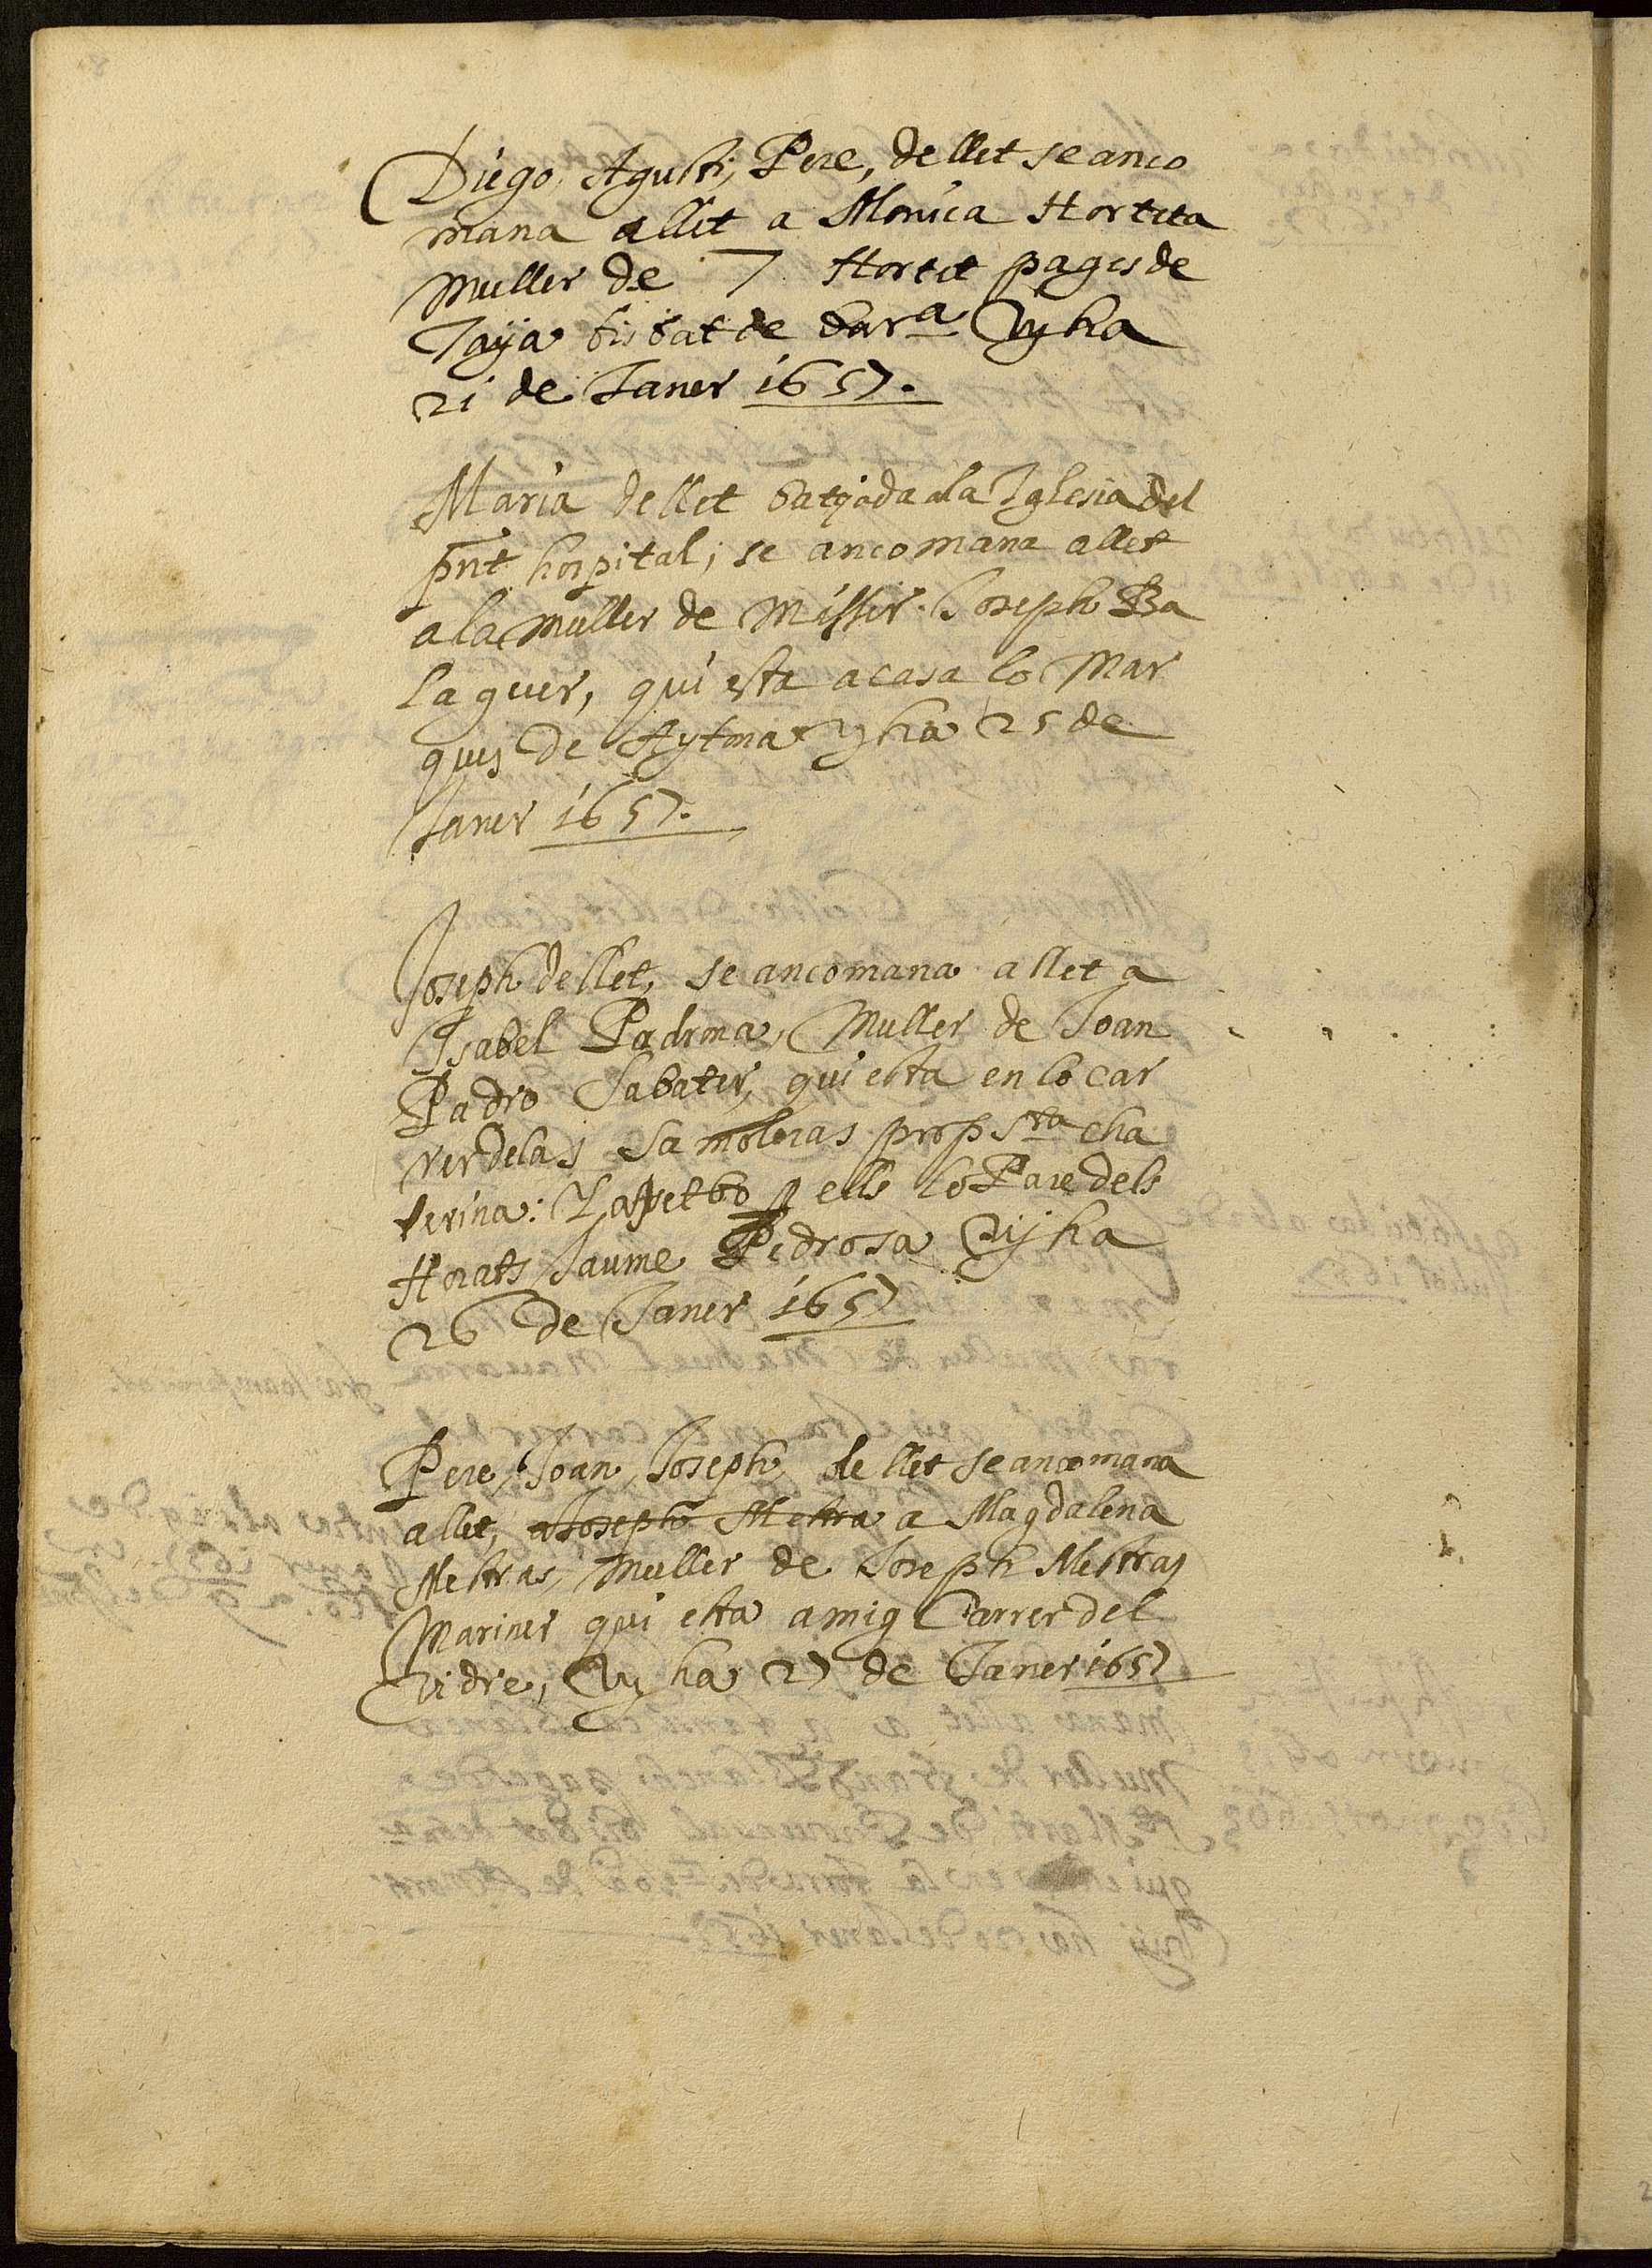 Diego, Agusti, Pere, de llet se anco
mana allet a Monica Horteta
muller de 7 Hortet pages de
Taya bisbat de Bar.ª Vy ha
21 de Janer 1657.
Maria de llet batejada a la Iglesia del
pnt hospital; se ancomana allet
a la muller de Misser Joseph Ba
laguer, qui esta a casa lo Mar
ques de Aytona y ha 25 de
Janer 1657.
Joseph de llet, se ancomana a llet a
Isabel Padrona, Muller de Joan
Padro Sabater, qui esta en lo car
rer de las Samoleras prop S.ta Cha
terina: y a
p ells lo Pare dels
Horats Jaume Pedrosa Vy ha
26 de Janer 1657
Pere, Joan, Joseph, de llet se ancomana
allet, a Joseph Mestra a Magdalena
Mestras, muller de Joseph Mestras
Mariner qui esta a mig Carrer del
Vidre, Vy ha 27 de Janer 1657